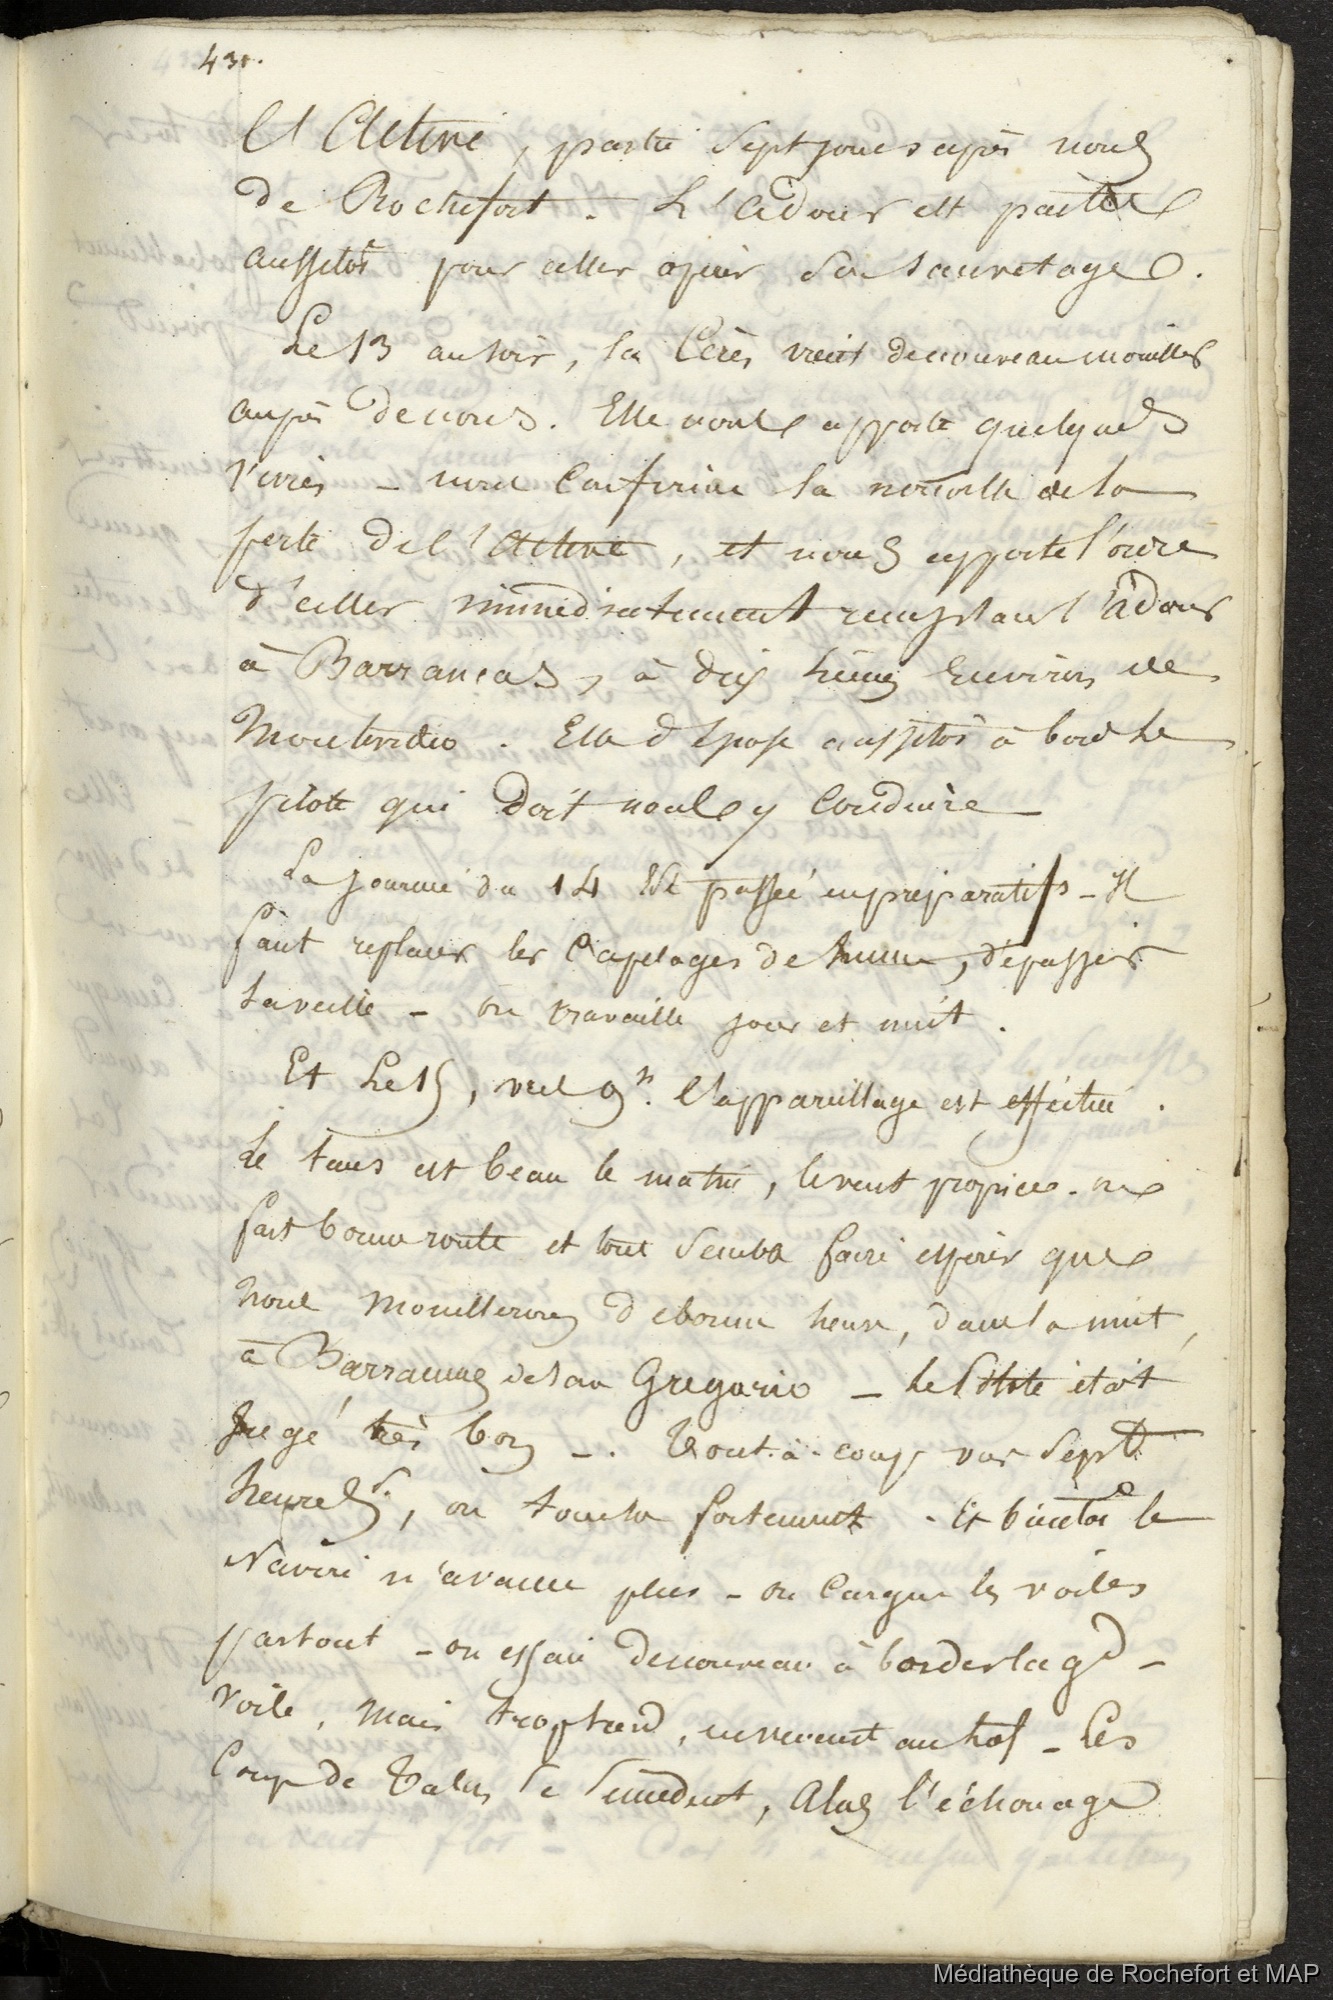 431.
L'Active, partie sept jours après nous
de Rochefort. L'Adour est partie
aussitôt pour aller opérer son sauvetage.
Le 13 au soir, la Cérès vient de nouveau mouiller
auprès de nous. Elle nous apporte quelques
vivres - nous confirme la nouvelle de la
perte de l'Active, et nous apporte l'ordre
d'aller immédiatement remplacer l'Adour
à Barrancas, à dix lieues environ de
Montevideo. Elle dépose aussitôt à bord le
pilote qui doit nous y conduire
La journée du 14 est passée en préparatifs - Il
faut replacer les capelages de hune, dépassés
la veille - on travaille jour et nuit.
Et le 15, vers 9h. l'appareillage est effectué.
Le tems est beau le matin, le vent propice. on
fait bonne route et tout semble faire espérer que
nous mouillerons de bonne heure, dans la nuit,
à Barrancas de San Gregorio - Le Pilote était
jugé très bon -. Tout-à-coup vers sept
heures S., on touche fortement. Et bientôt le
Navire n'avance plus - on cargue les voiles
partout - on essaie de nouveau à border la gd-
voile, mais trop tard, en revenant au lof - Les
coups de talon se succèdent, alors l'échouage
Médiathèque de Rochefort et MAP